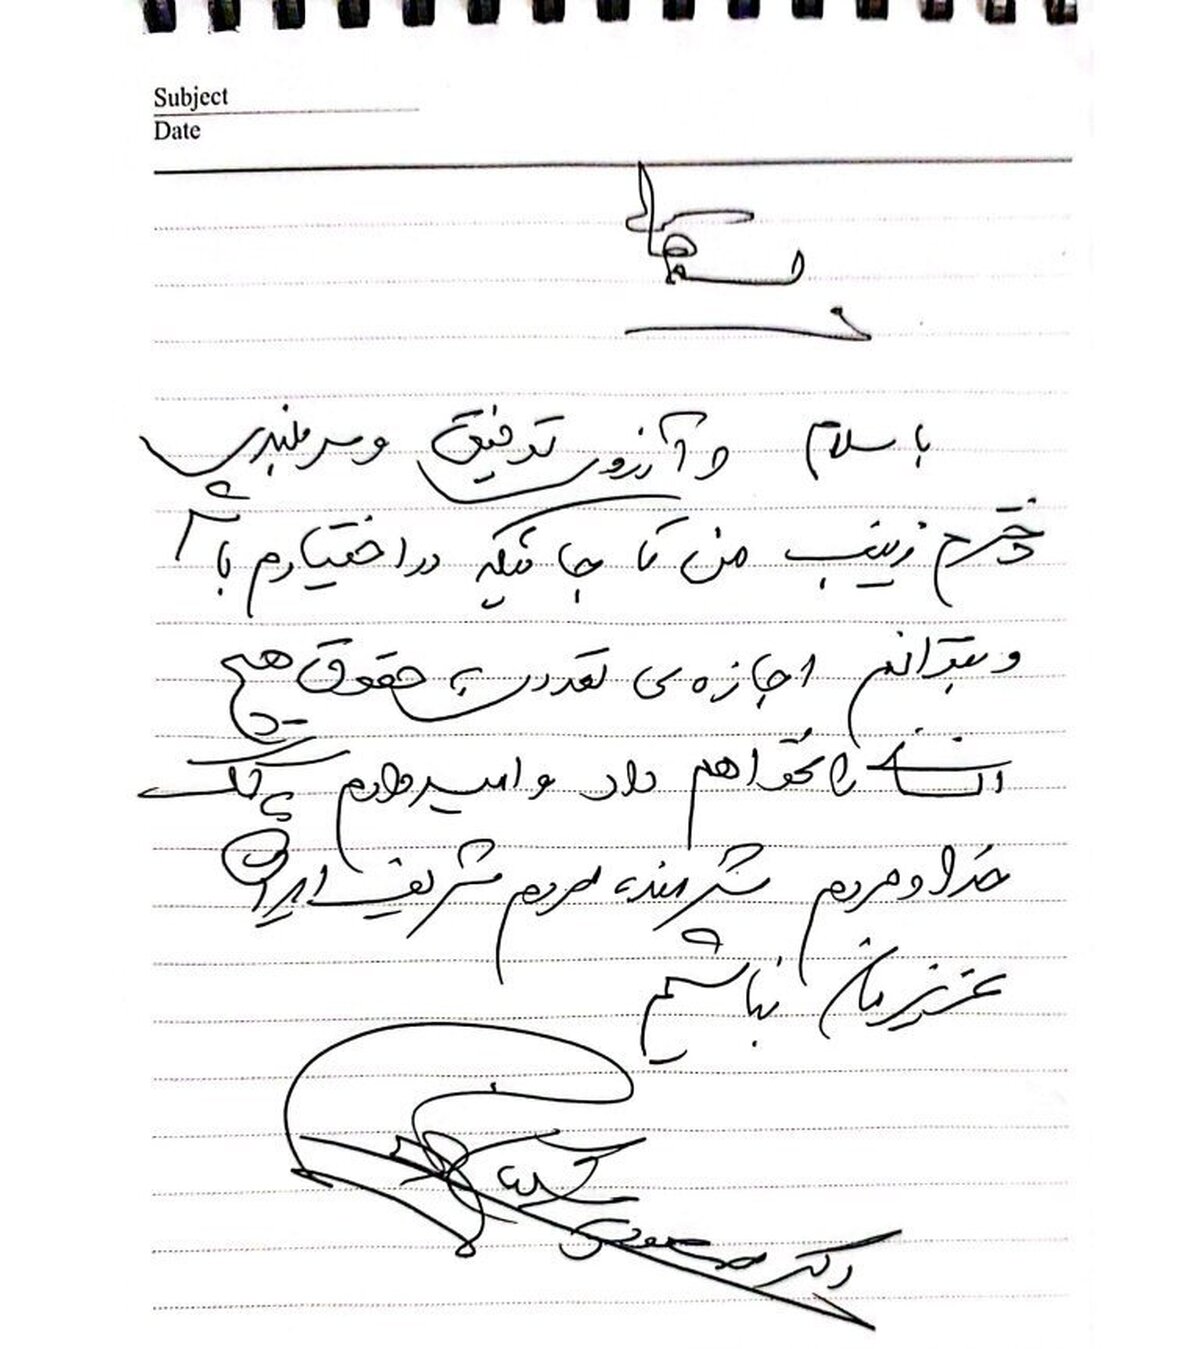 Subject
Date
بسمه تعالی
با سلام و آرزوی توفیق و سربلندی
دخترم زینب من تا جائیکه در اختیارم باشد
و بتوانم اجازه‌ی تعدی به حقوق هیچ
انسانی را نخواهم داد و امیدوارم پیش
خدا و مردم شرمنده مردم شریف ایران
عزیزمان نباشیم
دکتر مسعود پزشکیان